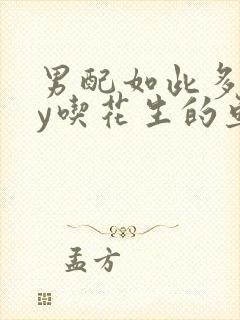 男配如此多
y喫花生的
孟方